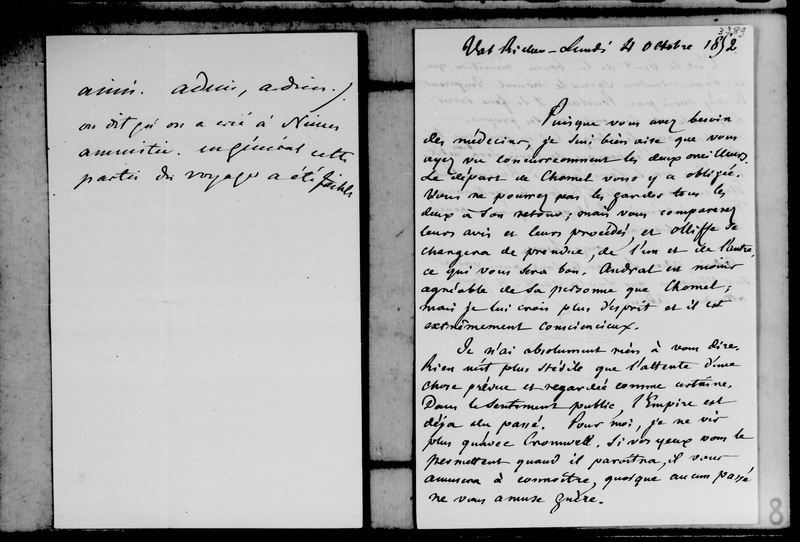 ainsi. adieu, adieu.
on dit qu'on a crié à Nimes
amnistie. en général cette
partie du voyage a été faible
3389
Val Richer - Lundi 4 octobre 1852
Puisque vous avez besoin
des médecins, je suis bien aise que vous
ayez vu concurremment les deux meilleurs.
Le départ de Chomel vous y a obligée.
Vous ne pourrez pas les garder tous les
deux à son retour; mais vous comparerez
leurs avis et leurs procédés, et Olliffe se
chargera de prendre, de l'un et de l'autre,
ce qui vous sera bon. Andral est moins
agréable de sa personne que Chomel;
mais je lui crois plus d'esprit et il est
extrêmement consciencieux.
Je n'ai absolument rien à vous dire.
Rien n'est plus stérile que l'attente d'une
chose prévue et regardée comme certaine.
Dans le sentiment public, l'Empire est
déja du passé. Pour moi, je ne vis
plus qu'avec Cromwell. Si vos yeux vous le
permettent quand il paraîtra, il vous
amusera à connaître, quoique aucun passé
ne vous amuse guère.
8